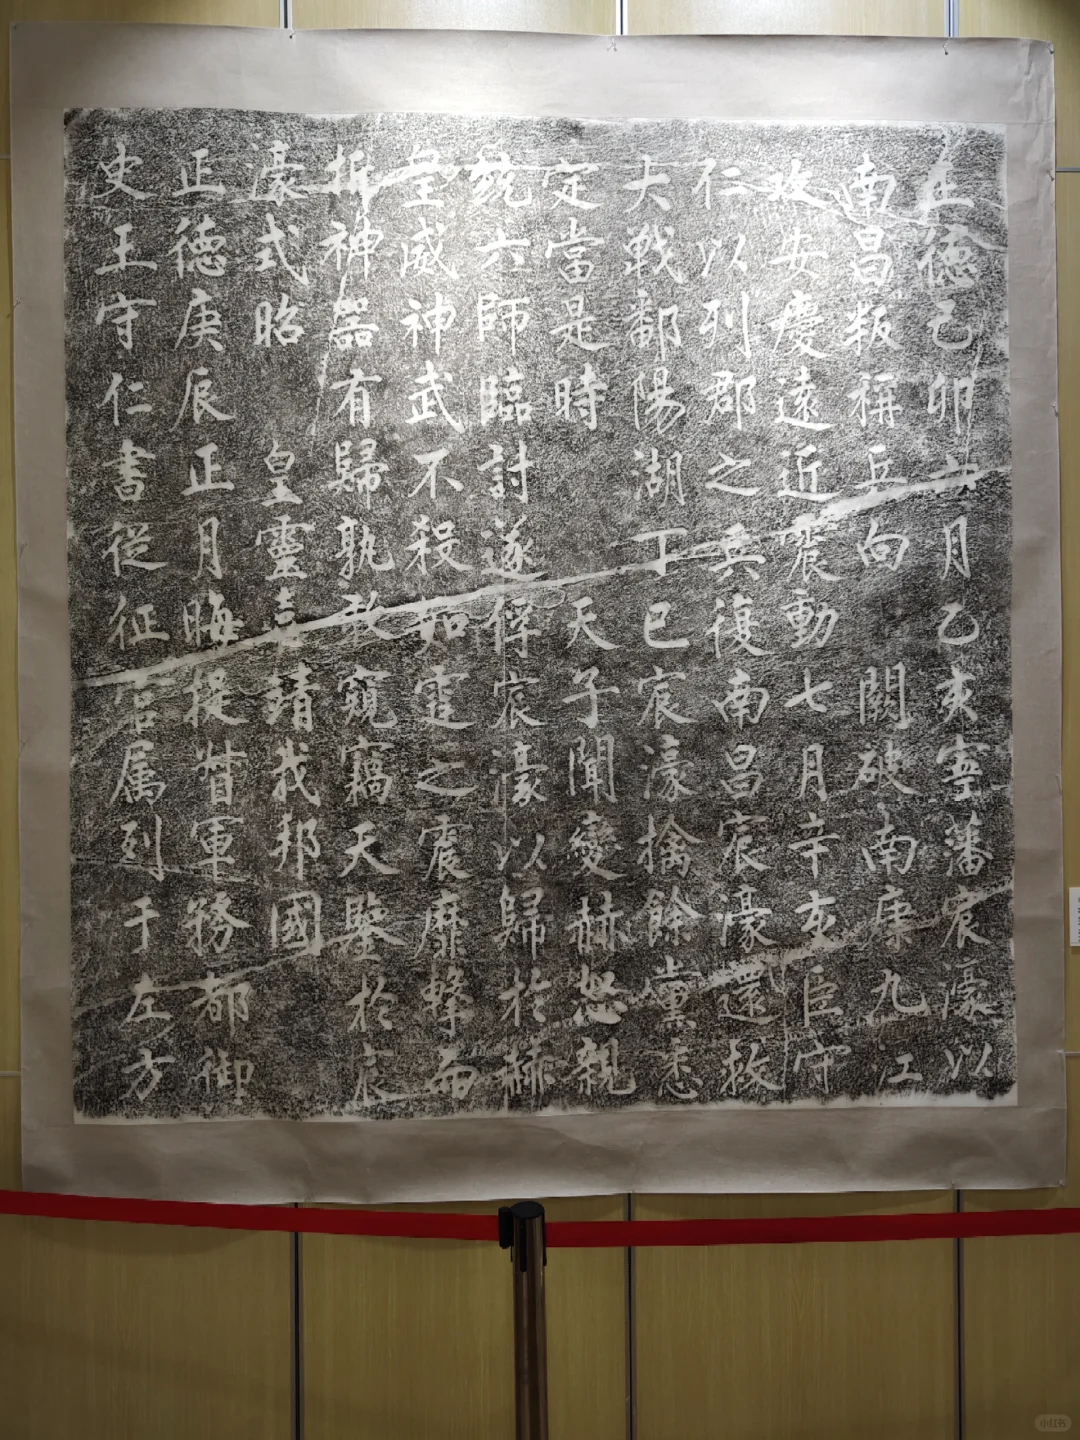 正德己卯六月乙亥寧藩宸濠以
南昌叛稱兵向 闕破南康九江
攻安慶遠近震動七月辛亥臣守
仁以列郡之兵復南昌宸濠還救
大戰鄱陽湖丁巳宸濠擒餘黨悉
定當是時 天子聞變赫怒親
統六師臨討遂俘宸濠以歸於赫
皇威神武不殺如霆之震靡擊而
折神器有歸孰敢窺竊天鑒於宸
濠式昭 皇靈嘉靖我邦國
正德庚辰正月晦提督軍務都御
史王守仁書從征官属列于左方
小红书